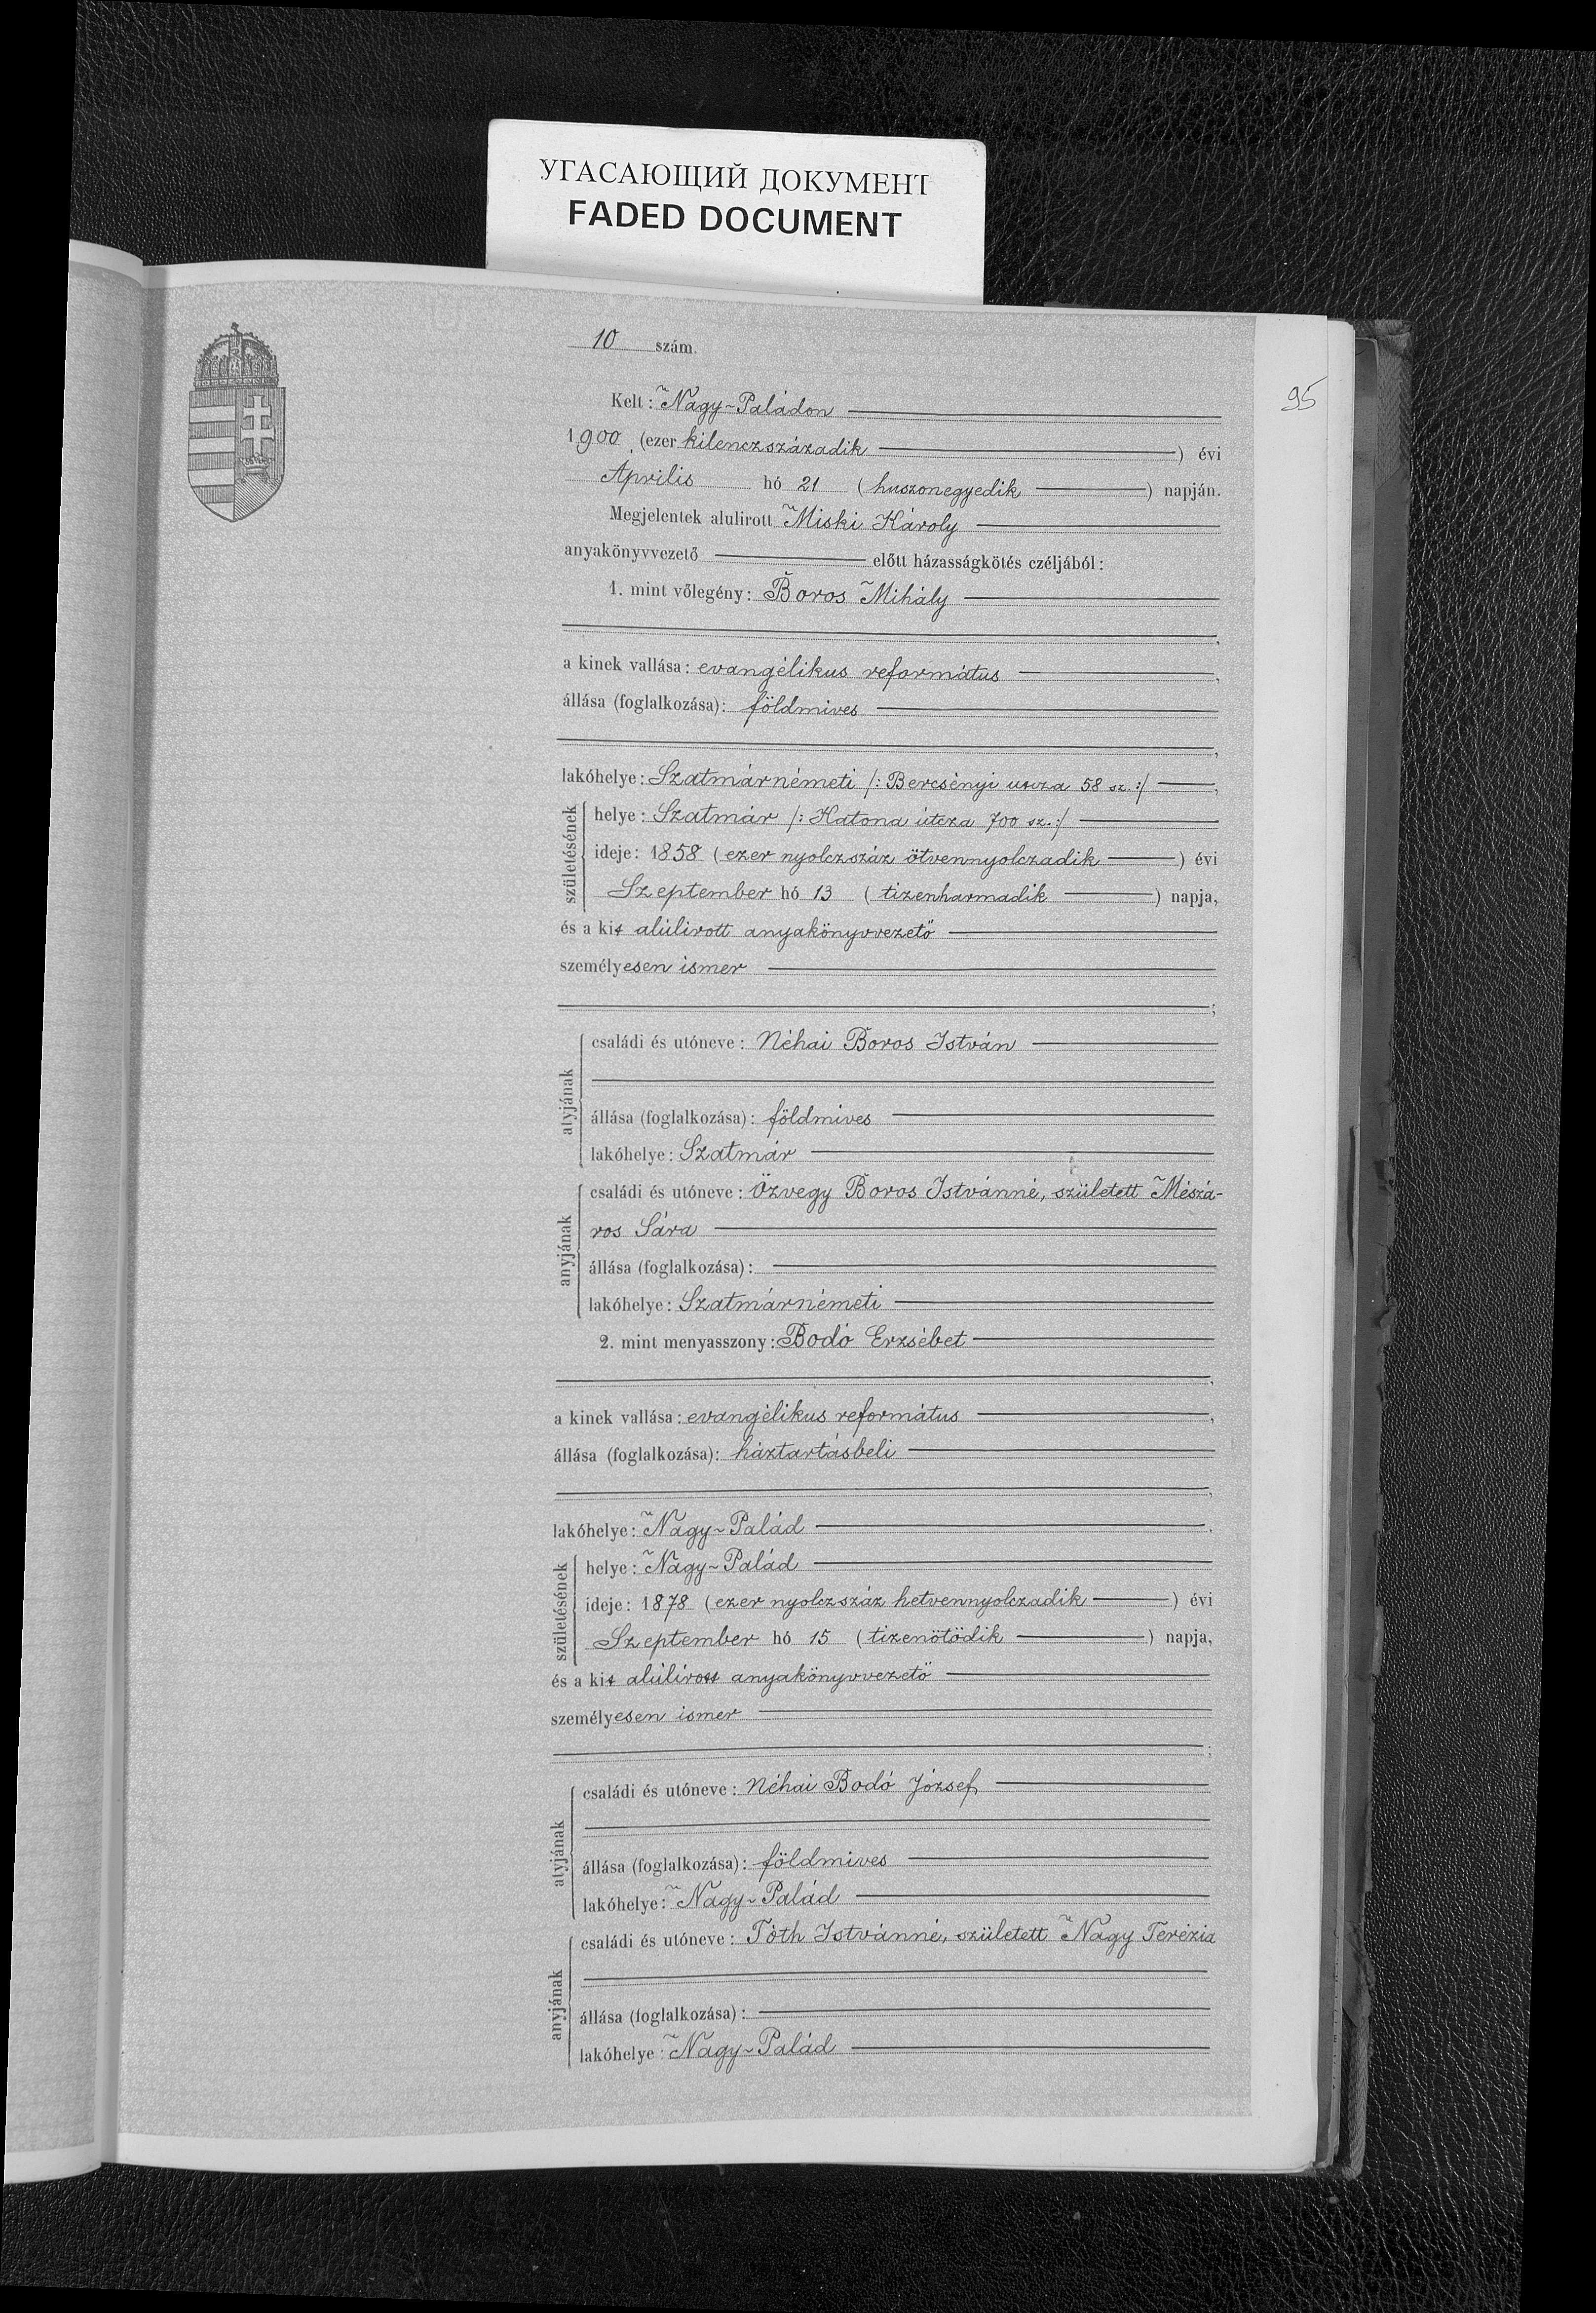 УГАСАЮЩИЙ ДОКУМЕНТ
FADED DOCUMENT
10 szám.
95
Kelt: Nagy-Paládon
1900 (ezer kilenczszázadik) évi
Április hó 21 (huszonegyedik) napján.
Megjelentek alulirott Miski Károly
anyakönyvvezető előtt házasságkötés czéljából:
1. mint vőlegény: Boros Mihály
a kinek vallása: evangélikus református,
állása (foglalkozása): földmives
lakóhelye: Szatmárnémeti /: Bercsényi utcza 58 sz. :/,
születésének
helye: Szatmár /: Katona útcza 700 sz. :/
ideje: 1858 (ezer nyolczszáz ötvennyolczadik) évi
Szeptember hó 13 (tizenharmadik) napja,
és a kit alúlirott anyakönyvvezető
személyesen ismer
;
atyjának
családi és utóneve: Néhai Boros István
állása (foglalkozása): földmives
lakóhelye: Szatmár
anyjának
családi és utóneve: Özvegy Boros Istvánné, született Mészá-
ros Sára
állása (foglalkozása):
lakóhelye: Szatmárnémeti
2. mint menyasszony: Bodó Erzsébet
a kinek vallása: evangélikus református,
állása (foglalkozása): háztartásbeli
lakóhelye: Nagy-Palád,
születésének
helye: Nagy-Palád
ideje: 1878 (ezer nyolczszáz hetvennyolczadik) évi
Szeptember hó 15 (tizenötödik) napja,
és a kit alúlirott anyakönyvvezető
személyesen ismer
;
atyjának
családi és utóneve: Néhai Bodó József
állása (foglalkozása): földmives
lakóhelye: Nagy-Palád
anyjának
családi és utóneve: Tóth Istvánné, született Nagy Terézia
állása (foglalkozása):
lakóhelye: Nagy-Palád